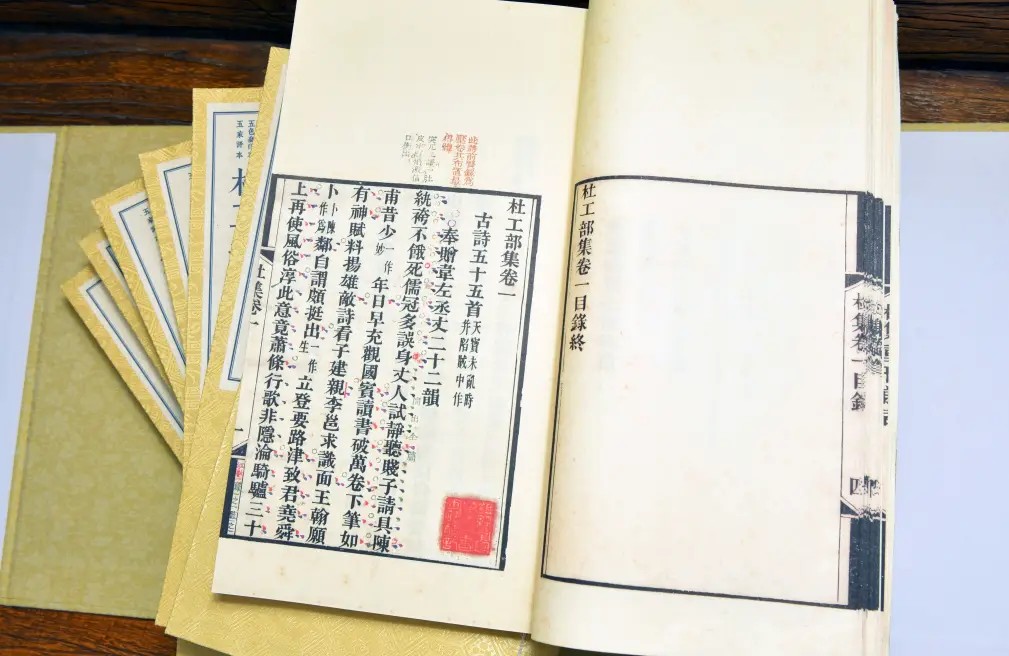 杜工部集卷一目錄終
杜集卷一目錄
四
杜工部集卷一
古詩五十五首 天寶未亂時并陷賊中作
奉贈韋左丞丈二十二韻
紈袴不餓死儒冠多誤身丈人試靜聽賤子請具陳
甫昔少一作妙年日早充觀國賓讀書破萬卷下筆如
有神賦料揚雄敵詩看子建親李邕求識面王翰願
卜卜陳作為鄰自謂頗挺出一作生立登要路津致君堯舜
上再使風俗淳此意竟蕭條行歌非隱淪騎驢三十
杜集卷一
一
五家評本